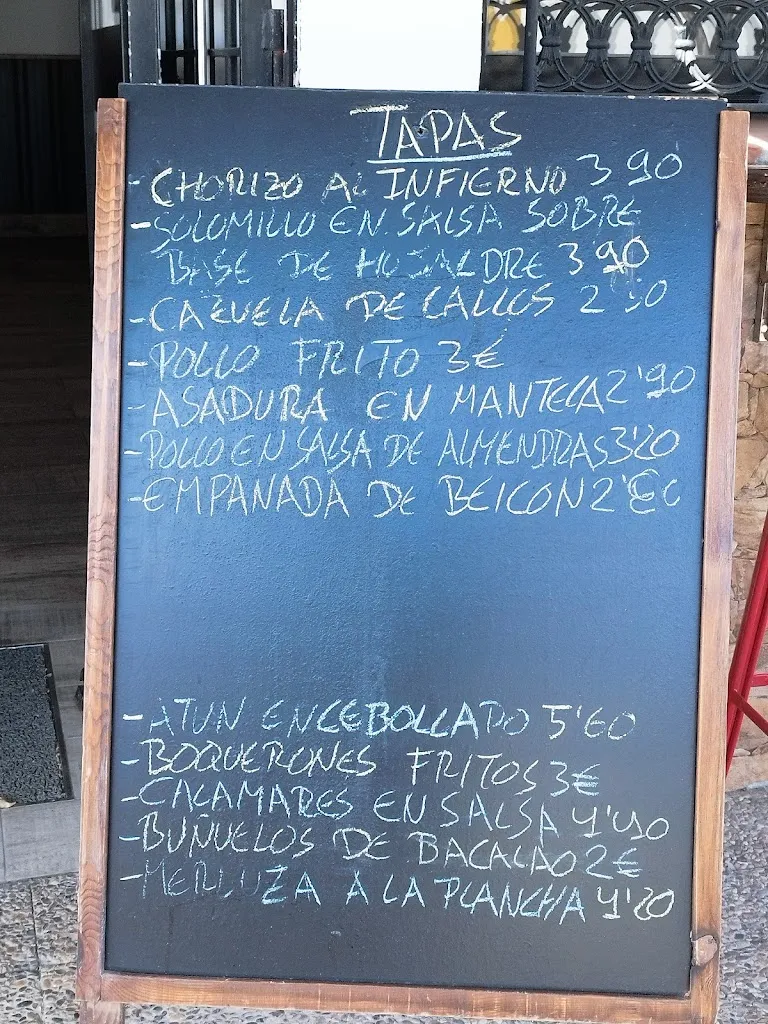 TAPAS
- CHORIZO AL INFIERNO 3'90
- SOLOMILLO EN SALSA SOBRE
BASE DE HOJALDRE 3'90
- CAZUELA DE CALLOS 2'50
- POLLO FRITO 3€
- ASADURA EN MANTECA 2'90
- POLLO EN SALSA DE ALMENDRAS 3'20
- EMPANADA DE BEICON
- ATUN ENCEBOLLADO 5'60
- BOQUERONES FRITOS 3€
- CALAMARES EN SALSA 4'40
- BUÑUELOS DE BACALAO 2€
- MERLUZA A LA PLANCHA 4'20